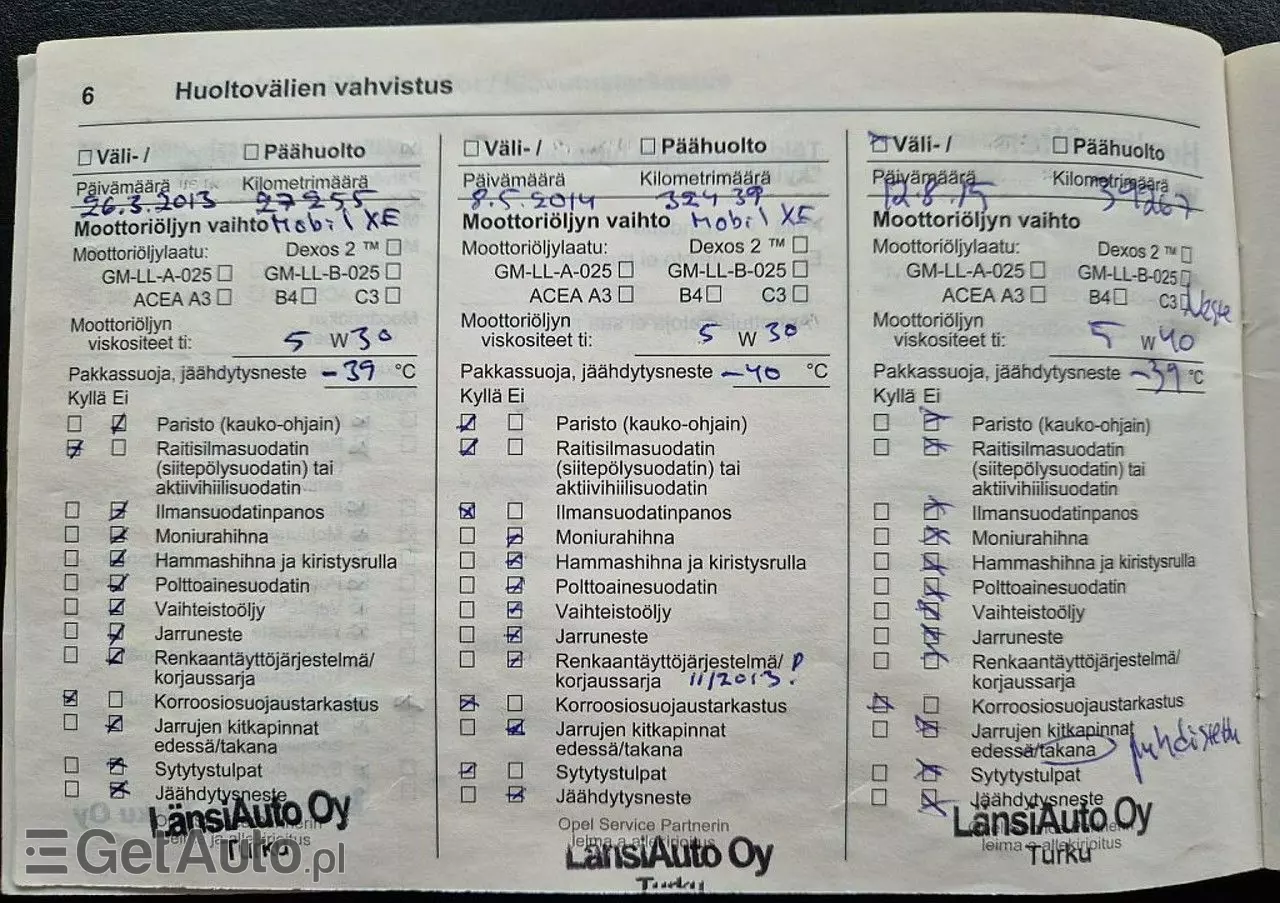 6 Huoltovälien vahvistus
☐ Väli- / ☐ Päähuolto
Päivämäärä Kilometrimäärä
26.3.2013 27255
Moottoriöljyn vaihto Mobil XE
Moottoriöljylaatu: Dexos 2 ™ ☐
GM-LL-A-025 ☐ GM-LL-B-025 ☐
ACEA A3 ☐ B4 ☐ C3 ☐
Moottoriöljyn
viskositeet ti: 5 W 30
Pakkassuoja, jäähdytysneste -39 °C
Kyllä Ei
☐ ☒ Paristo (kauko-ohjain)
☒ ☐ Raitisilmasuodatin
(siitepölysuodatin) tai
aktiivihiilisuodatin
☐ ☒ Ilmansuodatinpanos
☐ ☒ Moniurahihna
☐ ☒ Hammashihna ja kiristysrulla
☐ ☒ Polttoainesuodatin
☐ ☒ Vaihteistoöljy
☐ ☒ Jarruneste
☐ ☒ Renkaantäyttöjärjestelmä/
korjaussarja
☒ ☐ Korroosiosuojaustarkastus
☐ ☒ Jarrujen kitkapinnat
edessä/takana
☐ ☒ Sytytystulpat
☐ ☒ Jäähdytysneste
LänsiAuto Oy
Turku
☐ Väli- / ☐ Päähuolto
Päivämäärä Kilometrimäärä
8.5.2014 32439
Moottoriöljyn vaihto Mobil XE
Moottoriöljylaatu: Dexos 2 ™ ☐
GM-LL-A-025 ☐ GM-LL-B-025 ☐
ACEA A3 ☐ B4 ☐ C3 ☐
Moottoriöljyn
viskositeet ti: 5 W 30
Pakkassuoja, jäähdytysneste -40 °C
Kyllä Ei
☒ ☐ Paristo (kauko-ohjain)
☒ ☐ Raitisilmasuodatin
(siitepölysuodatin) tai
aktiivihiilisuodatin
☒ ☐ Ilmansuodatinpanos
☐ ☒ Moniurahihna
☐ ☒ Hammashihna ja kiristysrulla
☐ ☒ Polttoainesuodatin
☐ ☒ Vaihteistoöljy
☐ ☒ Jarruneste
☐ ☒ Renkaantäyttöjärjestelmä/ P
korjaussarja 11/2013.
☒ ☐ Korroosiosuojaustarkastus
☐ ☒ Jarrujen kitkapinnat
edessä/takana
☒ ☐ Sytytystulpat
☐ ☒ Jäähdytysneste
Opel Service Partnerin
leima a allekirjoitus
LänsiAuto Oy
☒ Väli- / ☐ Päähuolto
Päivämäärä Kilometrimäärä
12.8.15 39267
Moottoriöljyn vaihto
Moottoriöljylaatu: Dexos 2 ™ ☐
GM-LL-A-025 ☐ GM-LL-B-025 ☐
ACEA A3 ☐ B4 ☐ C3 ☐ Neste
Moottoriöljyn
viskositeet ti: 5 W 40
Pakkassuoja, jäähdytysneste -39 °C
Kyllä Ei
☐ ☒ Paristo (kauko-ohjain)
☐ ☒ Raitisilmasuodatin
(siitepölysuodatin) tai
aktiivihiilisuodatin
☐ ☒ Ilmansuodatinpanos
☐ ☒ Moniurahihna
☐ ☒ Hammashihna ja kiristysrulla
☐ ☒ Polttoainesuodatin
☐ ☒ Vaihteistoöljy
☐ ☒ Jarruneste
☐ ☒ Renkaantäyttöjärjestelmä/
korjaussarja
☒ ☐ Korroosiosuojaustarkastus
☐ ☒ Jarrujen kitkapinnat
edessä/takana puhdistettu
☐ ☒ Sytytystulpat
☐ ☒ Jäähdytysneste
LänsiAuto Oy
leima a allekirjoitus
Turku
GetAuto.pl